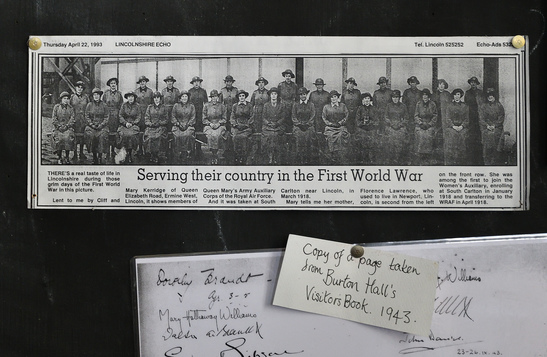 Thursday April 22, 1993 LINCOLNSHIRE ECHO Tel. Lincoln 525252 Echo-Ads
Serving their country in the First World War
THERE'S a real taste of life in
Lincolnshire during those
grim days of the First World
War in this picture.
Lent to me by Cliff and
Mary Kerridge of Queen
Elizabeth Road, Ermine West,
Lincoln, it shows members of
Queen Mary's Army Auxiliary
Corps of the Royal Air Force.
And it was taken at South
Carlton near Lincoln, in
March 1918.
Mary tells me her mother,
Florence Lawrence, who
used to live in Newport, Lin-
coln, is second from the left
on the front row. She was
among the first to join the
Women's Auxiliary, enrolling
at South Carlton in January
1918 and transferring to the
WRAF in April 1918.
Copy of a page taken
from Burton Hall's
Visitors Book. 1943.
Dorothy Brandt -
Mary Hathaway Williams
Williams